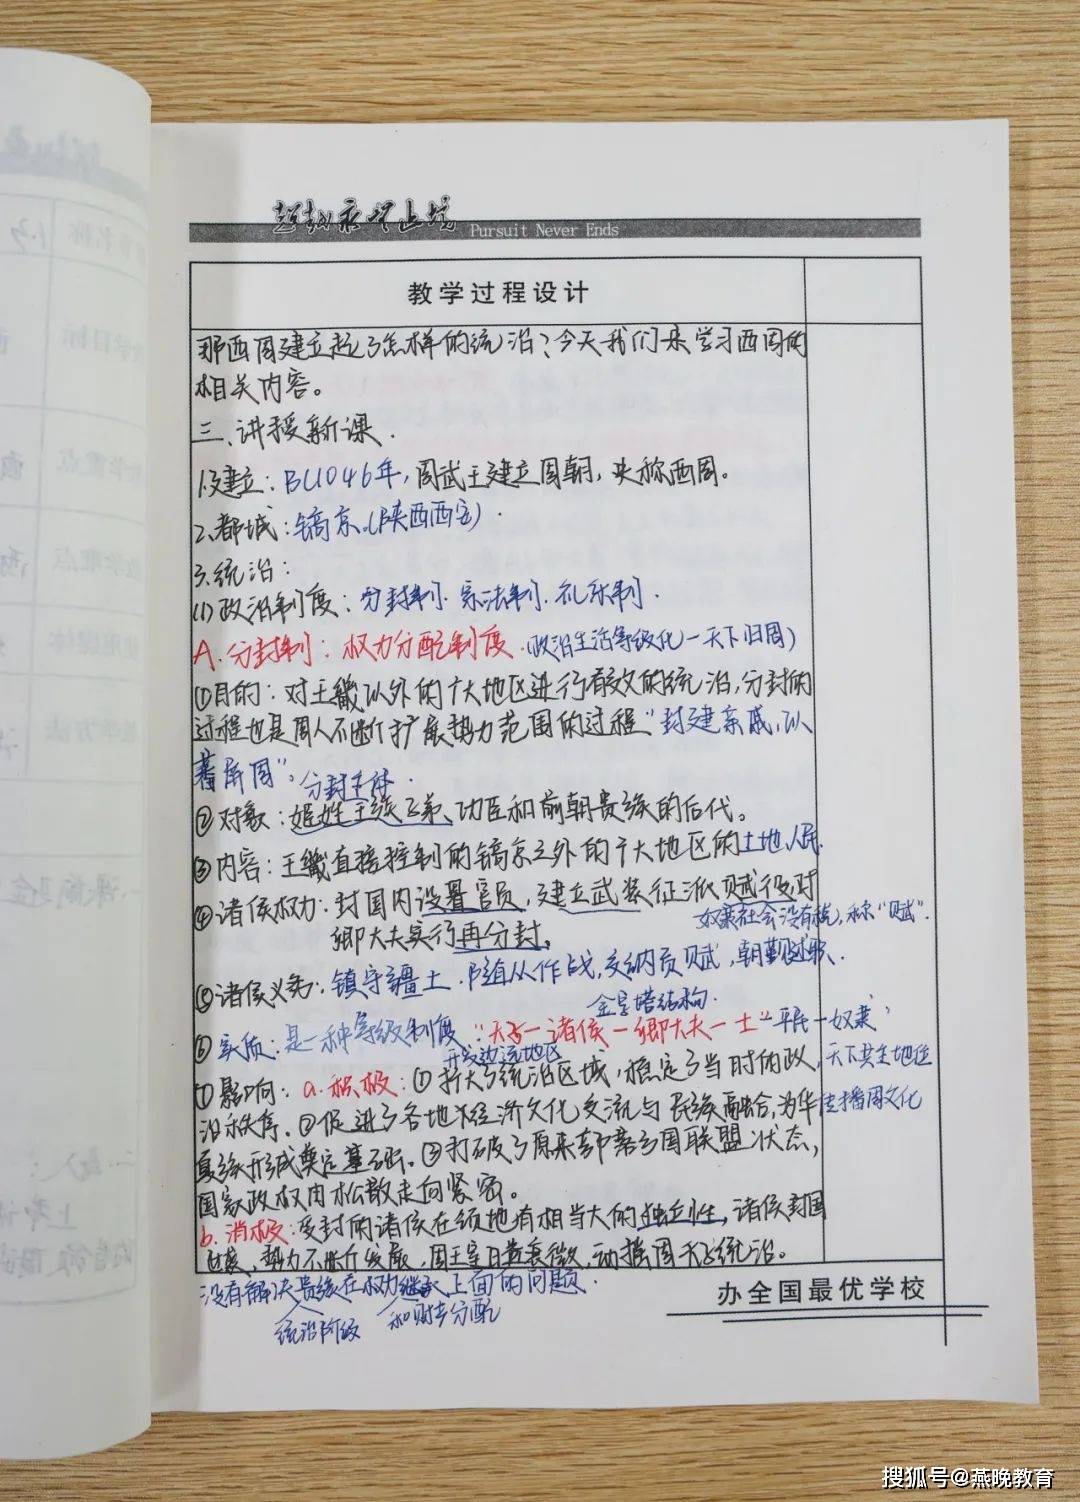 超越永无止境
Pursuit Never Ends
教学过程设计
那西周建立起了怎样的统治?今天我们来学习西周的
相关内容。
三、讲授新课.
1.建立:BC1046年,周武王建立周朝,史称西周。
2.都城:镐京.(陕西西安).
3.统治:
(1)政治制度:分封制.宗法制.礼乐制.
A.分封制:权力分配制度.(政治生活等级化一天下归周)
①目的:对王畿以外的广大地区进行有效的统治,分封的
过程也是周人不断扩展势力范围的过程"封建亲戚,以
蕃屏周"。
分封主体.
②对象:姬姓王族子弟、功臣和前朝贵族的后代。
③内容:王畿直接控制的镐京之外的广大地区的土地、人民.
④诸侯权力:封国内设置官员,建立武装征派赋役,对
奴隶社会没有税,称"赋".
卿大夫实行再分封。
⑤诸侯义务:镇守疆土.随从作战,交纳贡赋,朝觐述职.
金字塔结构.
⑥实质:是一种等级制度"天子一诸侯一卿大夫一士"一平民一奴隶
开发边远地区
天下共主地位
⑦影响:a.积极:①扩大了统治区域,稳定了当时的政
治秩序.②促进了各地经济文化交流与民族融合,为华
传播周文化
夏族形成奠定基础.③打破了原来部落方国联盟状态,
国家政权由松散走向紧密。
b.消极:受封的诸侯在领地有相当大的独立性,诸侯封国
世袭、势力不断发展,周王室日益衰微,动摇周天子统治。
没有解决贵族在权力继承上面的问题.
统治阶级
和财产分配
办全国最优学校
搜狐号@燕晚教育